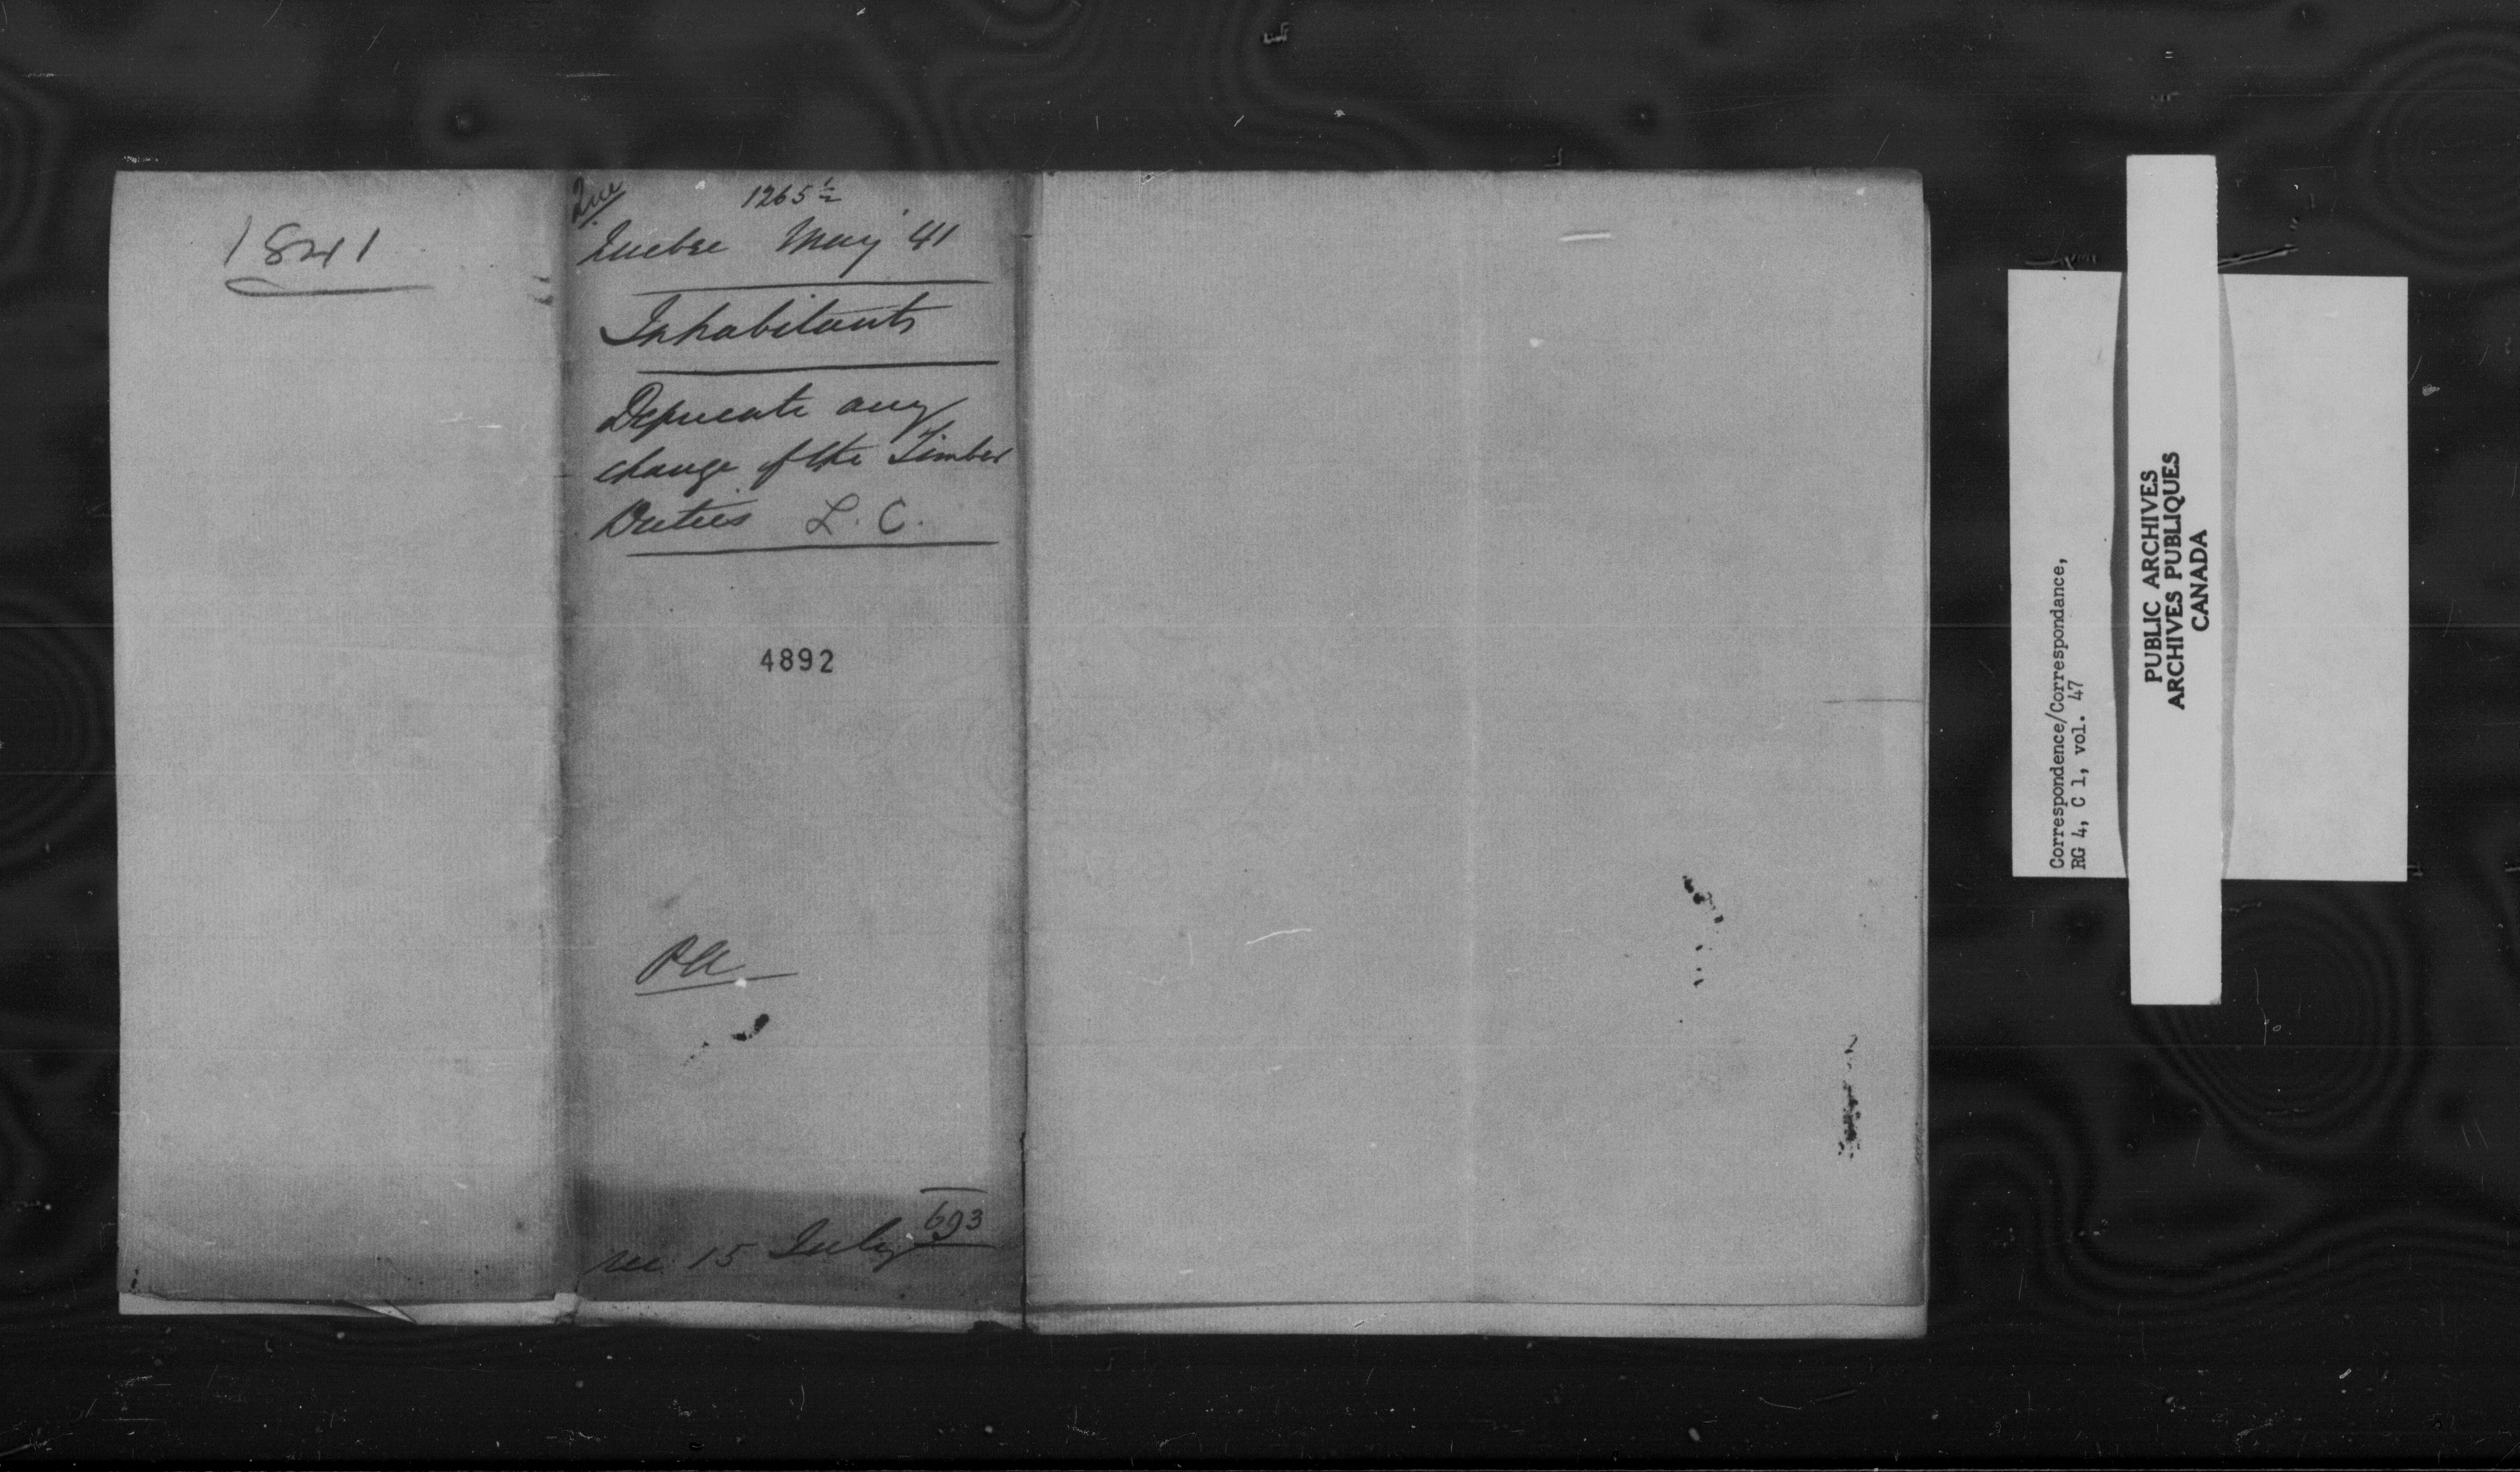 1841
Que
1265½
Quebec May 41
Inhabitants
Deprecate any
change of the Timber
Duties L. C.
4892
PA
693
rec 15 July
Correspondence/Correspondance,
RG 4, C 1, vol. 47
PUBLIC ARCHIVES
ARCHIVES PUBLIQUES
CANADA